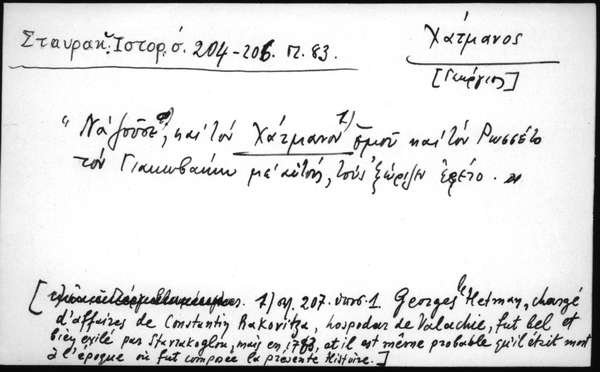 Σταυρακ. Ἱστορ. σ. 204-206. Π. 83.
Χάτμανος
[Γεώργιος]
"Νάζοῦσε, καὶ τὸν Χάτμανον 1) ὁμοῦ καὶ τὸν Ρωσσέτο
τὸν Γιακωβάκην μ' αὐτούς, τοὺς ἐξώριζεν ἐφέτο."
[ 1) σελ. 207. ὑποσ. 1. Georges Hetman, chargé
d'affaires de Constantin Rakovitza, hospodar de Valachie, fut bel et
bien exilé par Stavrakoglou, mais en 1763, et il est même probable qu'il était mort
à l'époque où fut composée la présente Histoire.]